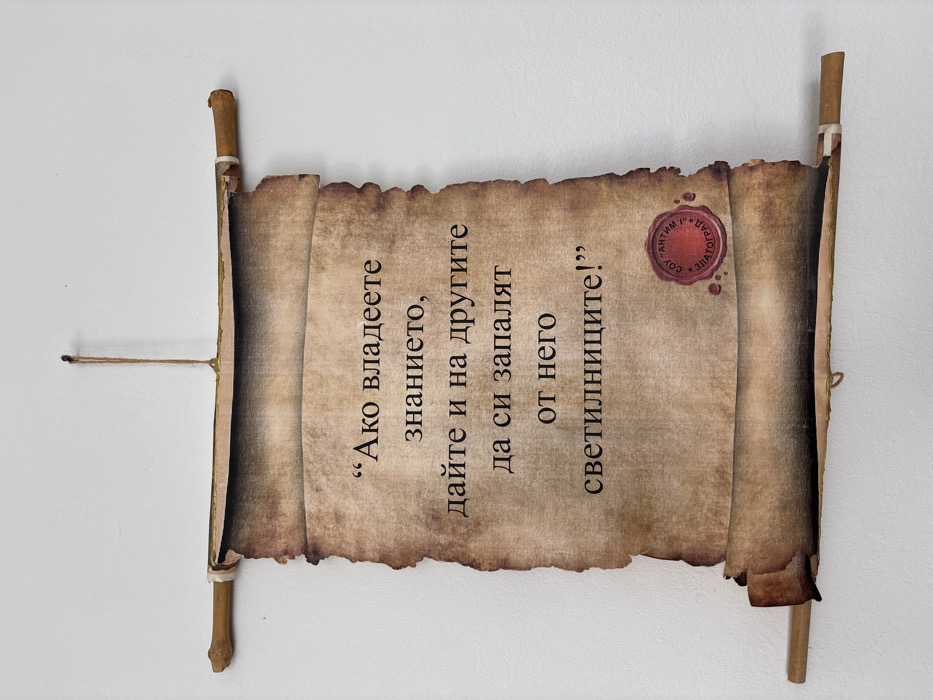 “Ако владеете
знанието,
дайте и на другите
да си запалят
от него
светилниците!”
СОУ "АНТИМ I" * ЗЛАТОГРАД *